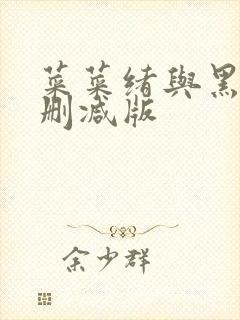 菜菜绪與黑
删减版
余少群